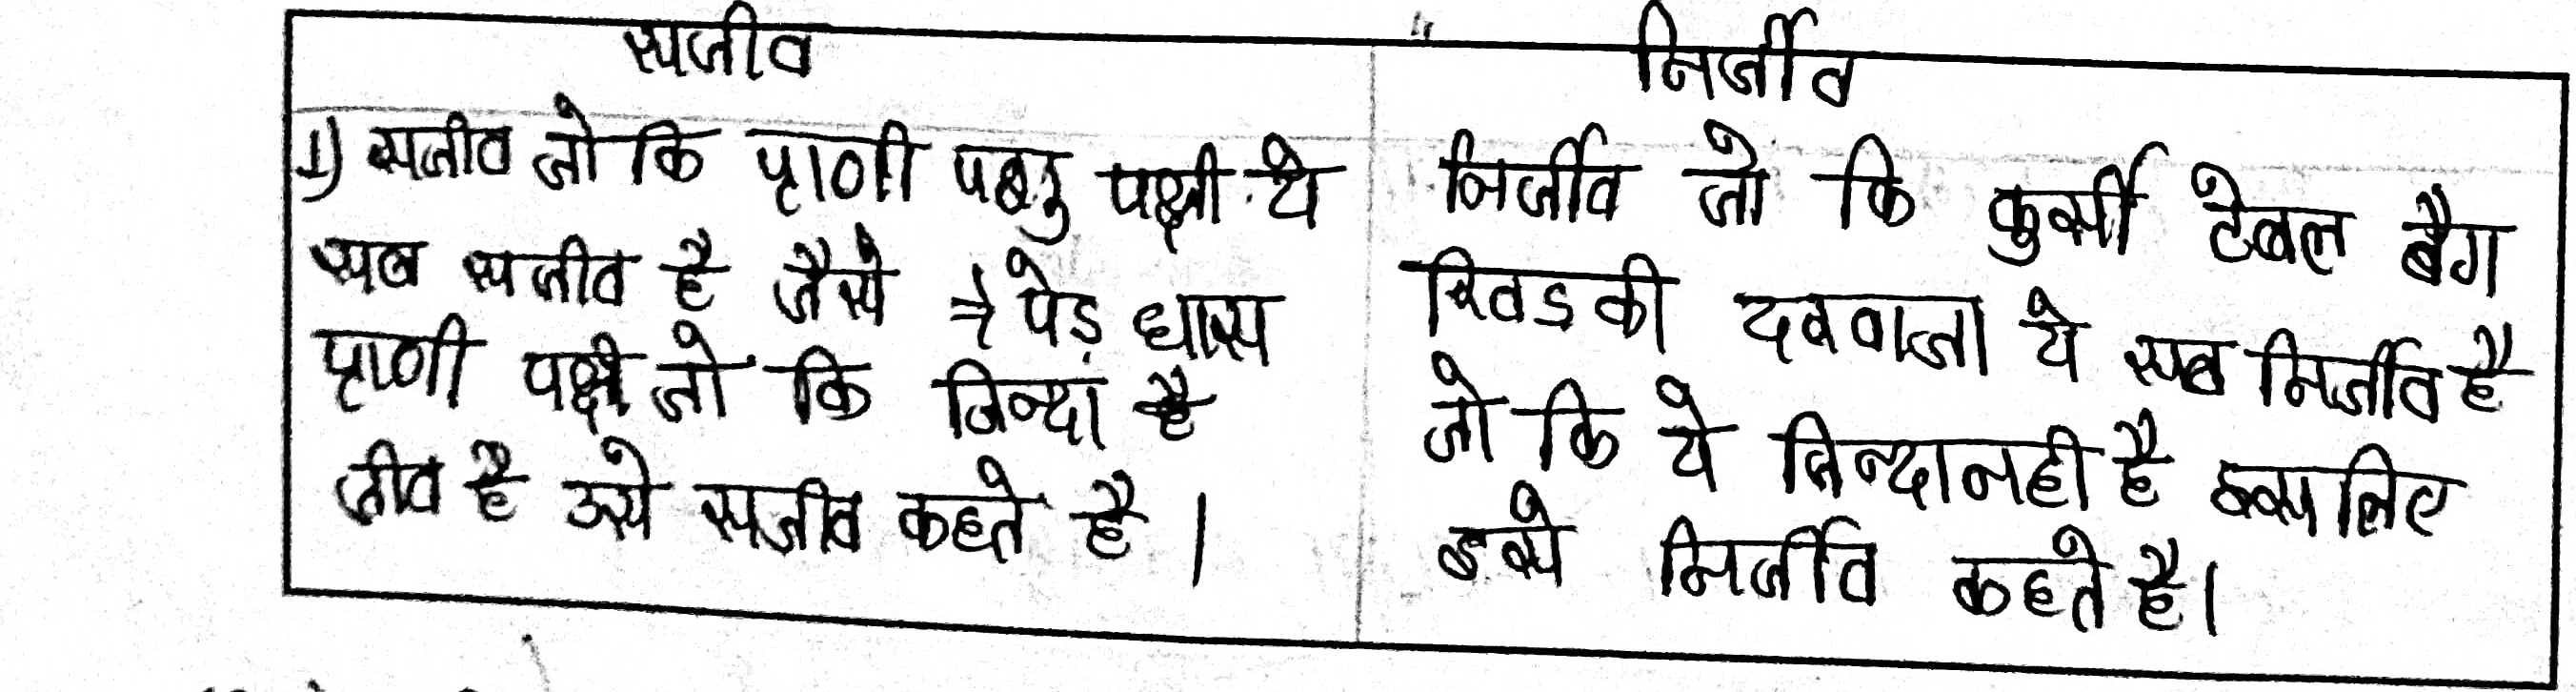 सजीव
निर्जीव
1) सजीव जो कि प्राणी पशु पक्षी ये
सब सजीव है जैसे पेड़ घास
प्राणी पक्षी जो कि जिन्दा है
जीव है उसे सजीव कहते है ।
निर्जीव जो कि कुर्सी टेबल बैग
खिडकी दरवाजा ये सब निर्जीव है
जो कि ये जिन्दा नही है इसलिए
इसे निर्जीव कहते है।